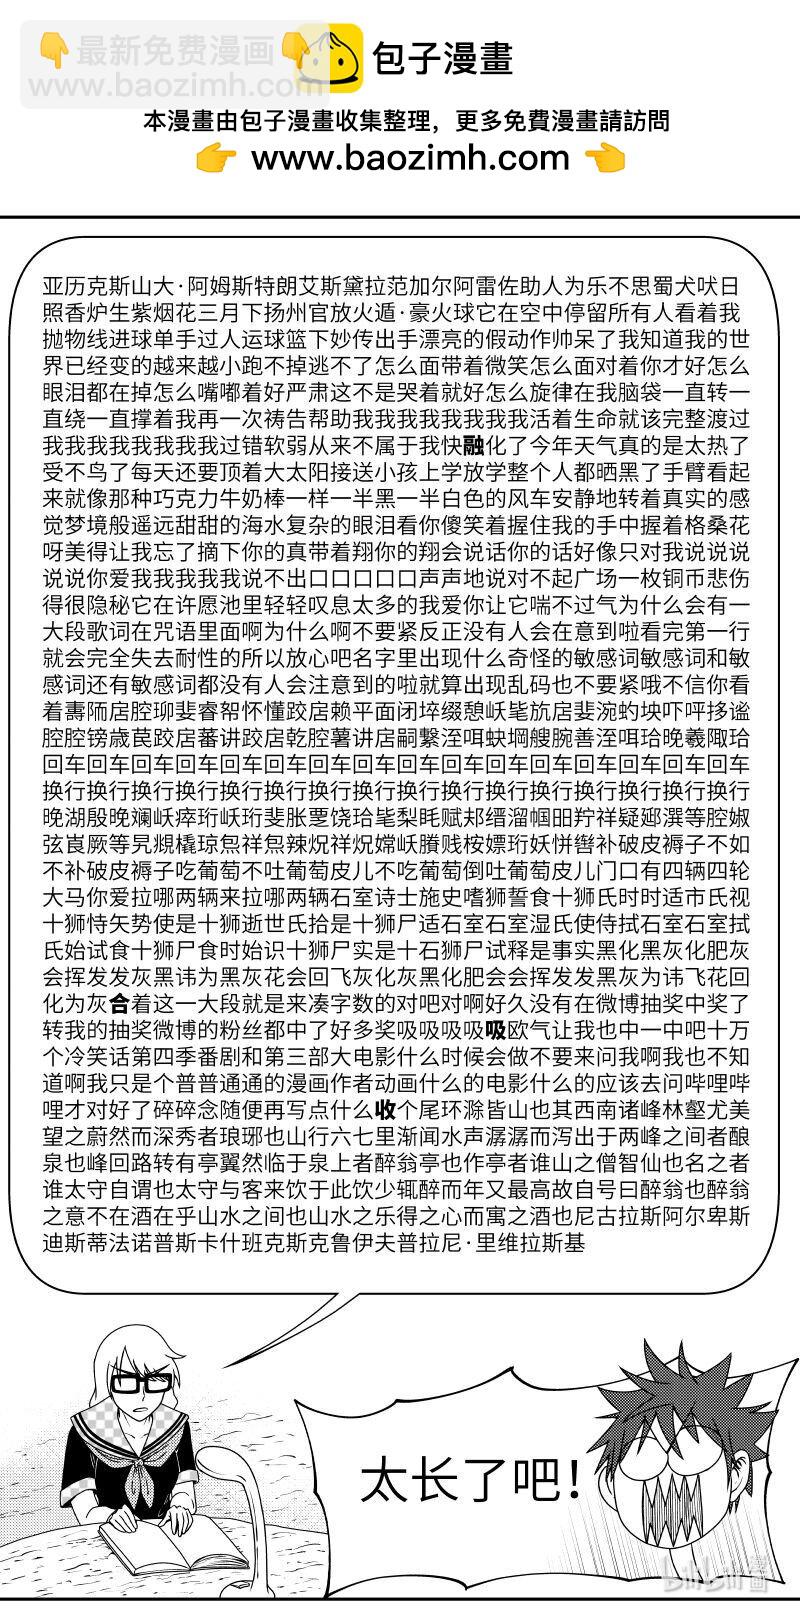 最新免费漫画
www.baozimh.com
包子漫畫
本漫畫由包子漫畫收集整理，更多免費漫畫請訪問
www.baozimh.com
亚历克斯山大·阿姆斯特朗艾斯黛拉范加尔阿雷佐助人为乐不思蜀犬吠日
照香炉生紫烟花三月下扬州官放火遁·豪火球它在空中停留所有人看着我
抛物线进球单手过人运球篮下妙传出手漂亮的假动作帅呆了我知道我的世
界已经变的越来越小跑不掉逃不了怎么面带着微笑怎么面对着你才好怎么
眼泪都在掉怎么嘴嘟着好严肃这不是哭着就好怎么旋律在我脑袋一直转一
直绕一直撑着我再一次祷告帮助我我我我我我我我活着生命就该完整渡过
我我我我我我我我过错软弱从来不属于我快融化了今年天气真的是太热了
受不鸟了每天还要顶着大太阳接送小孩上学放学整个人都晒黑了手臂看起
来就像那种巧克力牛奶棒一样一半黑一半白色的风车安静地转着真实的感
觉梦境般遥远甜甜的海水复杂的眼泪看你傻笑着握住我的手中握着格桑花
呀美得让我忘了摘下你的真带着翔你的翔会说话你的话好像只对我说说说
说说你爱我我我我我说不出口口口口口声声地说对不起广场一枚铜币悲伤
得很隐秘它在许愿池里轻轻叹息太多的我爱你让它喘不过气为什么会有一
大段歌词在咒语里面啊为什么啊不要紧反正没有人会在意到啦看完第一行
就会完全失去耐性的所以放心吧名字里出现什么奇怪的敏感词敏感词和敏
感词还有敏感词都没有人会注意到的啦就算出现乱码也不要紧哦不信你看
回车回车回车回车回车回车回车回车回车回车回车回车回车回车回车回车
换行换行换行换行换行换行换行换行换行换行换行换行换行换行换行换行
不补破皮褥子吃葡萄不吐葡萄皮儿不吃葡萄倒吐葡萄皮儿门口有四辆四轮
大马你爱拉哪两辆来拉哪两辆石室诗士施史嗜狮誓食十狮氏时时适市氏视
十狮恃矢势使是十狮逝世氏拾是十狮尸适石室石室湿氏使侍拭石室石室拭
氏始试食十狮尸食时始识十狮尸实是十石狮尸试释是事实黑化黑灰化肥灰
会挥发发灰黑讳为黑灰花会回飞灰化灰黑化肥会会挥发发黑灰为讳飞花回
化为灰合着这一大段就是来凑字数的对吧对啊好久没有在微博抽奖中奖了
转我的抽奖微博的粉丝都中了好多奖吸吸吸吸吸欧气让我也中一中吧十万
个冷笑话第四季番剧和第三部大电影什么时候会做不要来问我啊我也不知
道啊我只是个普普通通的漫画作者动画什么的电影什么的应该去问哔哩哔
哩才对好了碎碎念随便再写点什么收个尾环滁皆山也其西南诸峰林壑尤美
望之蔚然而深秀者琅琊也山行六七里渐闻水声潺潺而泻出于两峰之间者酿
泉也峰回路转有亭翼然临于泉上者醉翁亭也作亭者谁山之僧智仙也名之者
谁太守自谓也太守与客来饮于此饮少辄醉而年又最高故自号曰醉翁也醉翁
之意不在酒在乎山水之间也山水之乐得之心而寓之酒也尼古拉斯阿尔卑斯
迪斯蒂法诺普斯卡什班克斯克鲁伊夫普拉尼·里维拉斯基
太长了吧！
bilibili漫画